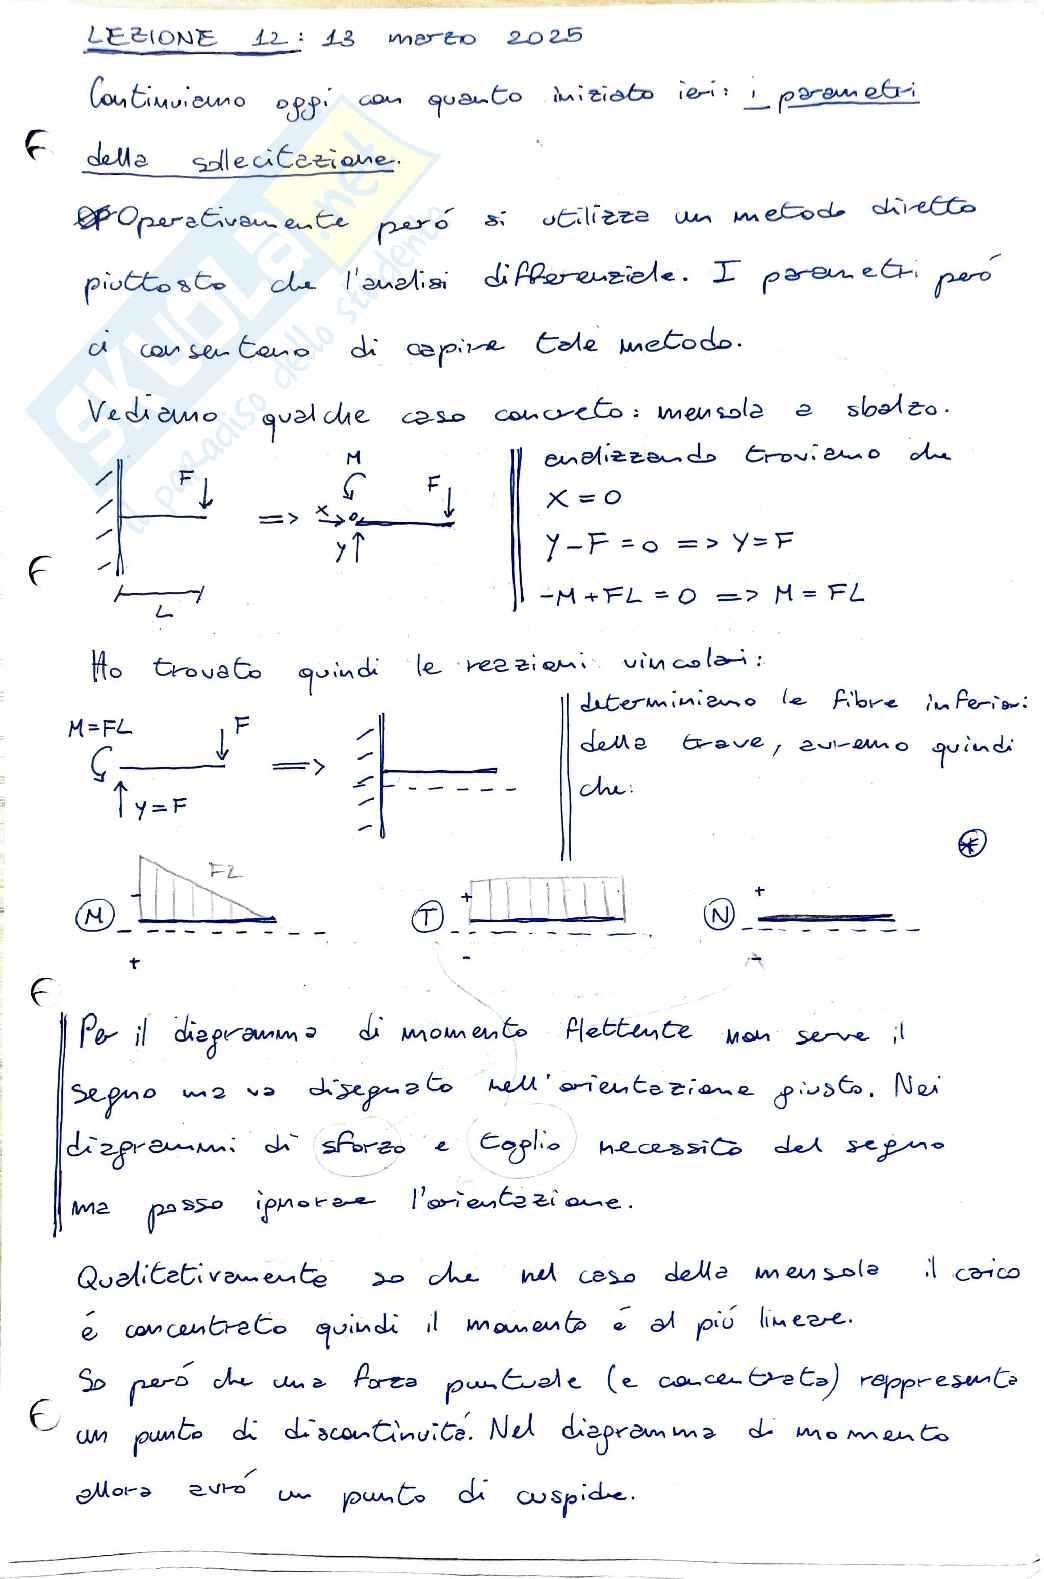 LEZIONE 12: 13 marzo 2025
Continuiamo oggi con quanto iniziato ieri: i parametri
della sollecitazione.
Operativamente peró si utilizza un metodo diretto
piuttosto che l'analisi differenziale. I parametri peró
ci consentono di capire tale metodo.
Vediamo qualche caso concreto: mensola a sbalzo.
F
L
=>
M
X
Y
F
analizzando troviamo che
X = 0
Y - F = 0 => Y = F
-M + FL = 0 => M = FL
Ho trovato quindi le reazioni vincolari:
M=FL
F
Y=F
=>
determiniamo le fibre inferiori
della trave, avremo quindi
che:
M
FL
+
T
+
-
N
+
-
Per il diagramma di momento flettente non serve il
segno ma va disegnato nell'orientazione giusta. Nei
diagrammi di sforzo e taglio necessito del segno
ma posso ignorare l'orientazione.
Qualitativamente so che nel caso della mensola il carico
é concentrato quindi il momento é al piú lineare.
So peró che una forza puntuale (e concentrata) rappresenta
un punto di discontinuitá. Nel diagramma di momento
allora avró un punto di cuspide.
SKUOLA.net
il paradiso dello studente